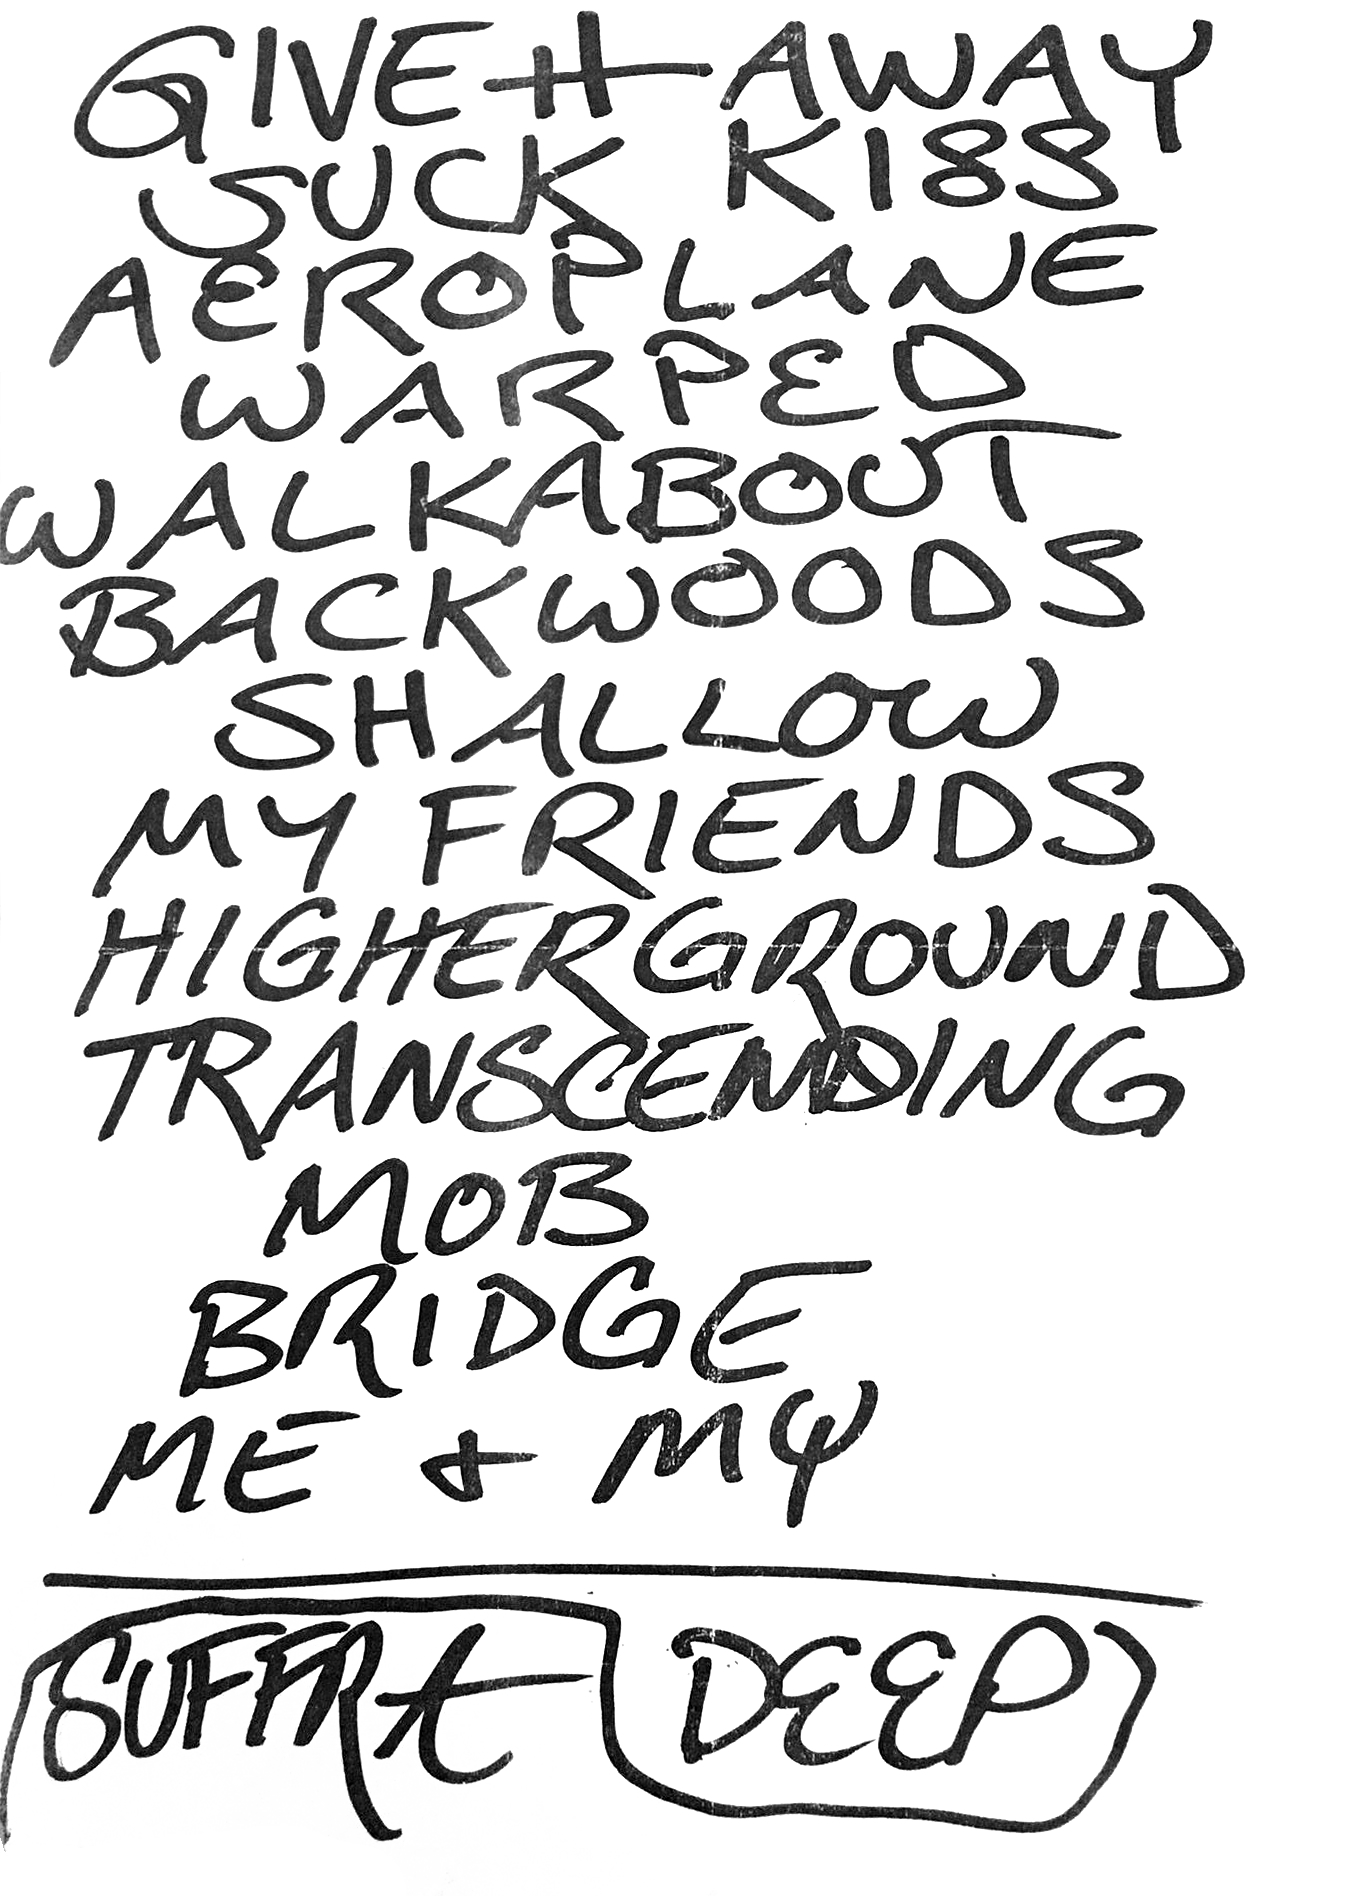 GIVE IT AWAY
SUCK KISS
AEROPLANE
WARPED
WALKABOUT
BACKWOODS
SHALLOW
MY FRIENDS
HIGHERGROUND
TRANSCENDING
MOB
BRIDGE
ME + MY
SUFFRA DEEP